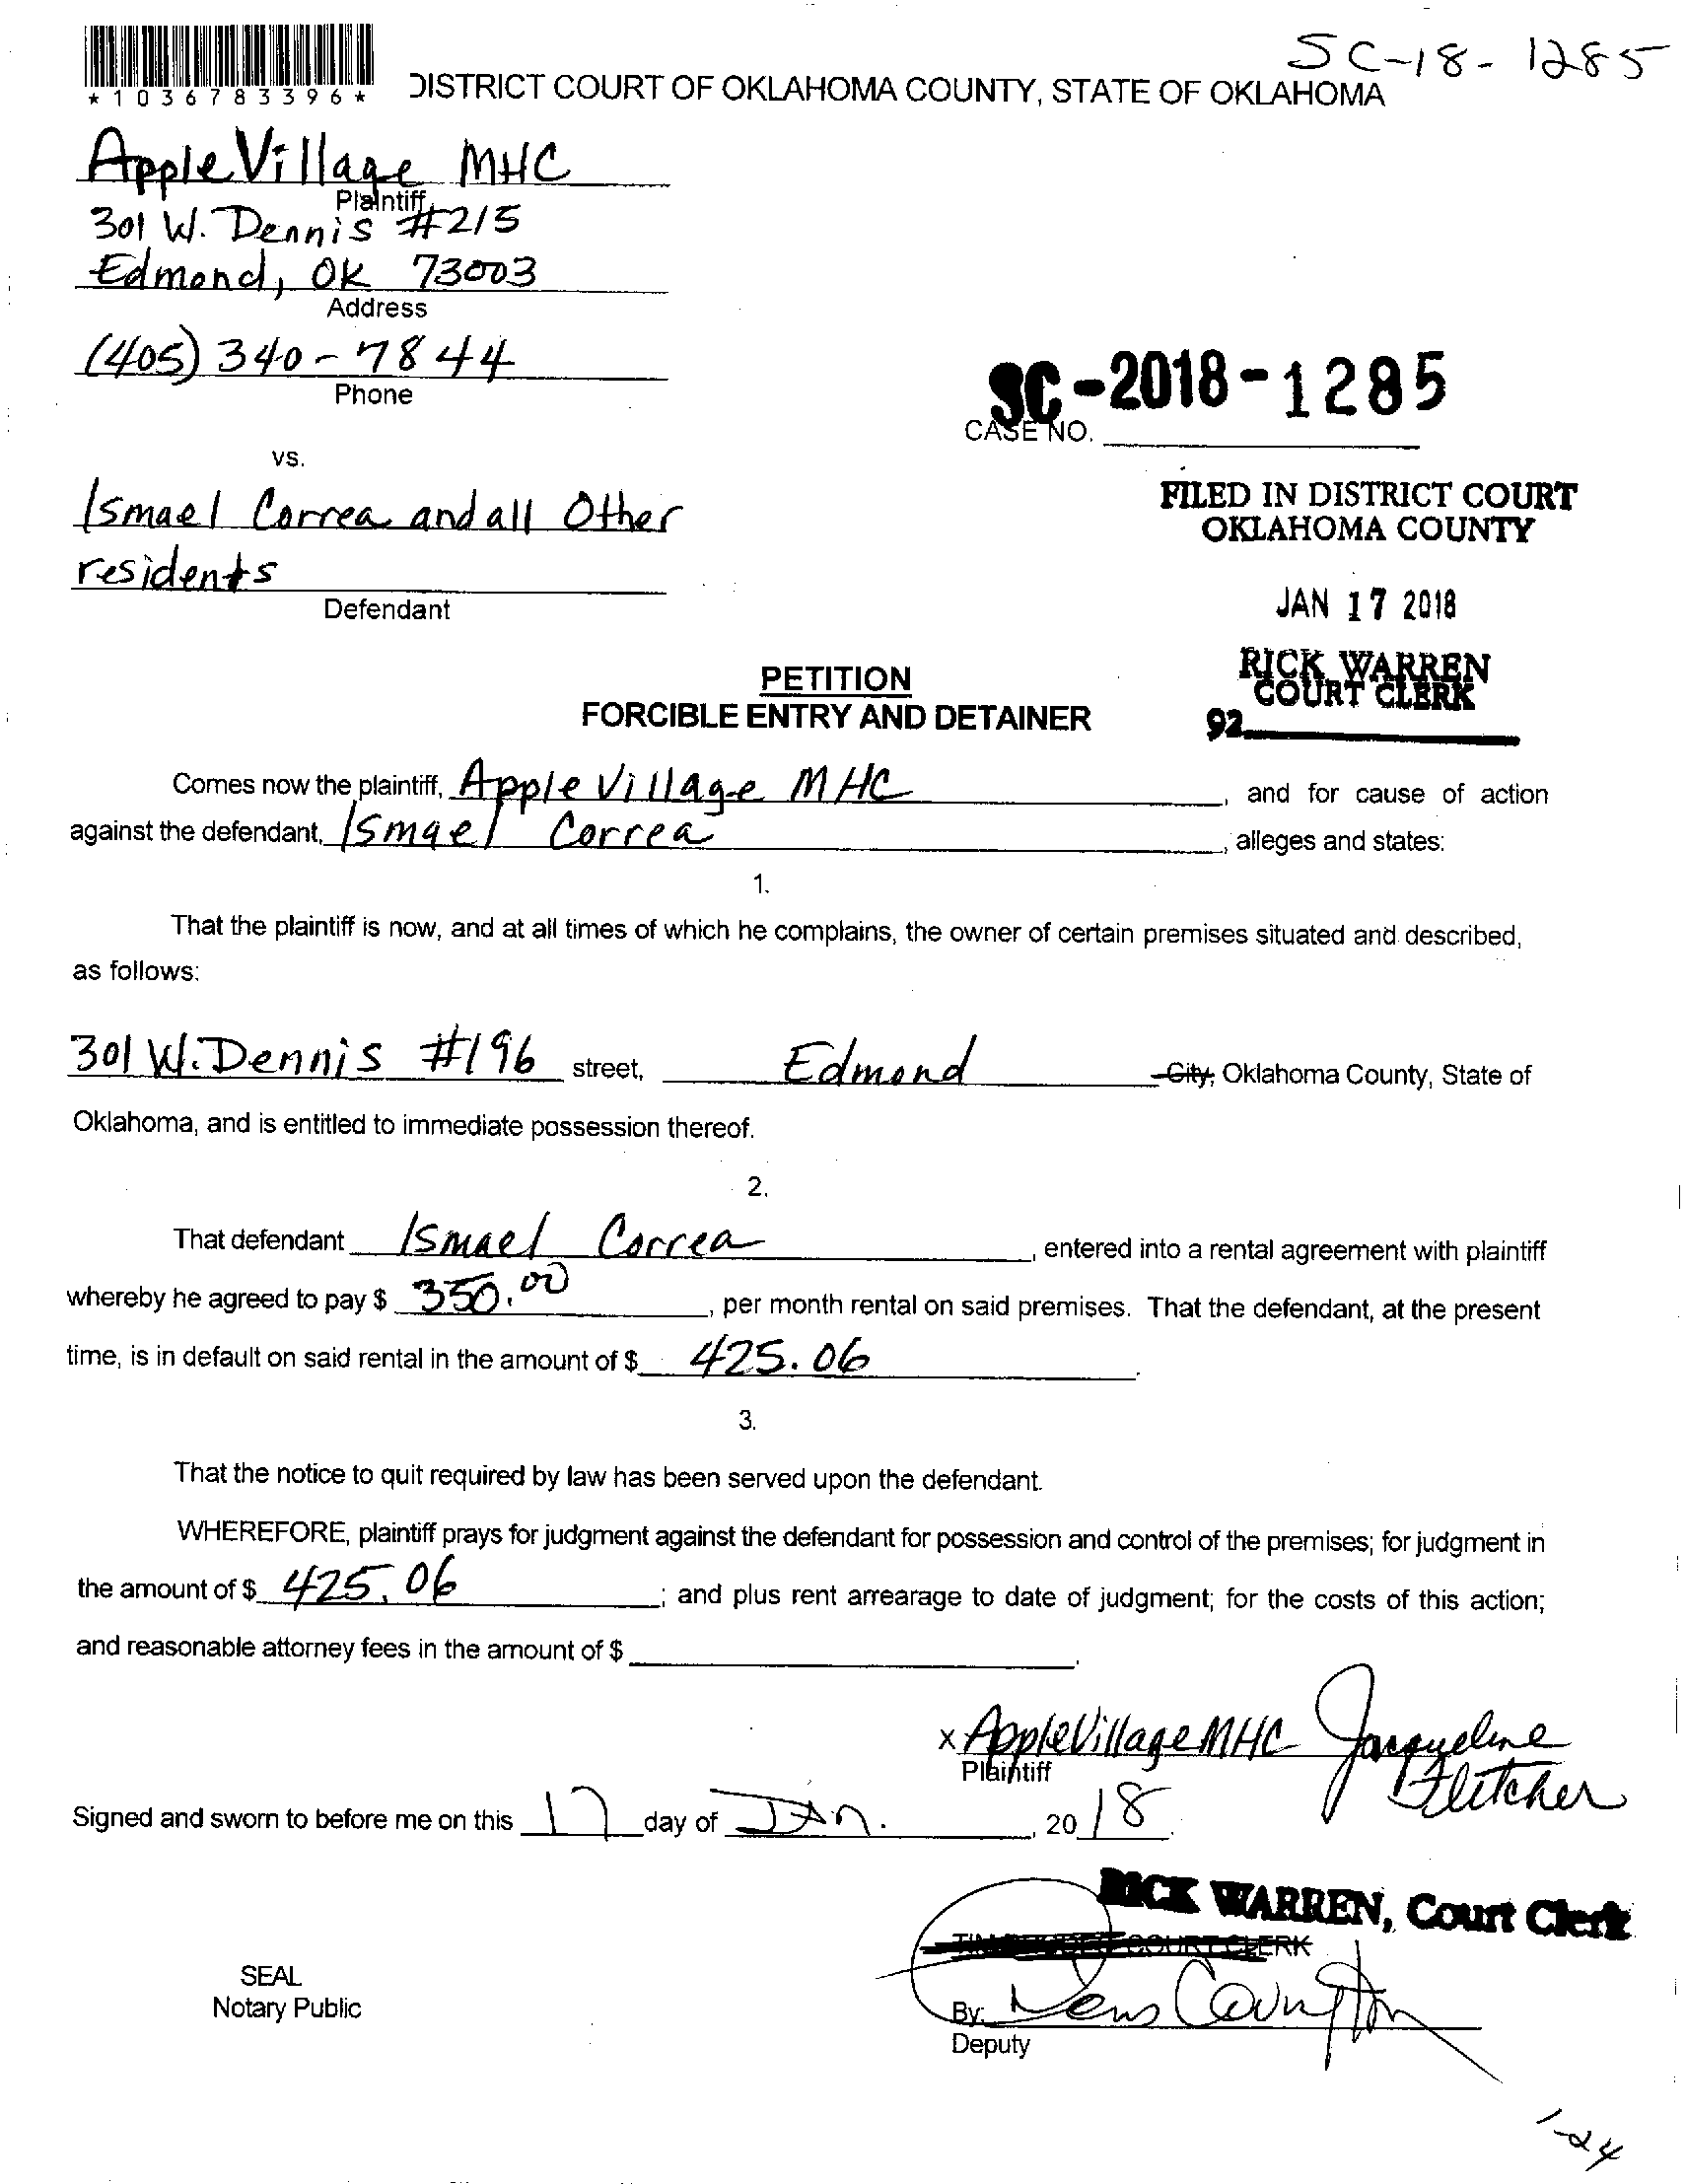 SC-18-1285
*1036783396*
DISTRICT COURT OF OKLAHOMA COUNTY, STATE OF OKLAHOMA
Apple Village MHC
Plaintiff
301 W. Dennis #215
Edmond, OK 73003
Address
(405) 340-7844
Phone
SC-2018-1285
CASE NO.
vs.
Ismael Correa and all Other
residents
Defendant
FILED IN DISTRICT COURT
OKLAHOMA COUNTY
JAN 17 2018
RICK WARREN
COURT CLERK
92
PETITION
FORCIBLE ENTRY AND DETAINER
Comes now the plaintiff, Apple Village MHC, and for cause of action
against the defendant, Ismael Correa, alleges and states:
1.
That the plaintiff is now, and at all times of which he complains, the owner of certain premises situated and described,
as follows:
301 W. Dennis #196 street, Edmond City, Oklahoma County, State of
Oklahoma, and is entitled to immediate possession thereof.
2.
That defendant Ismael Correa, entered into a rental agreement with plaintiff
whereby he agreed to pay $ 350.00, per month rental on said premises. That the defendant, at the present
time, is in default on said rental in the amount of $ 425.06.
3.
That the notice to quit required by law has been served upon the defendant.
WHEREFORE, plaintiff prays for judgment against the defendant for possession and control of the premises; for judgment in
the amount of $ 425.06; and plus rent arrearage to date of judgment; for the costs of this action;
and reasonable attorney fees in the amount of $ .
x Apple Village MHC Jacqueline Fletcher
Plaintiff
Signed and sworn to before me on this 17 day of Jan., 2018.
RICK WARREN, Court Clerk
COURT CLERK
SEAL
Notary Public
By:
Deputy
1-24